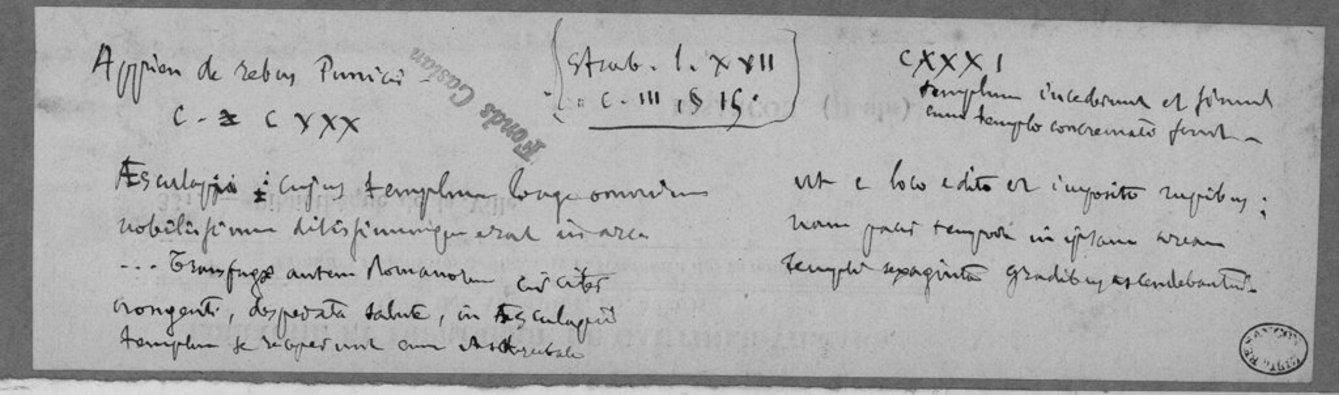 Appien de rebus Punicis
C. CXXX
Fonds Castan
Strab. l. XVII
c. III, § 15.
CXXXI
templum incederunt et simul
cum templo concremati
Æsculapii : cujus templum longe omnium
nobilissimum ditissimumque erat in arce
... Transfugæ autem Romanorum circiter
nongenti, desperata salute, in Æsculapii
templum se receperunt cum Asdrubale
ut e loco edito et imposito rupibus ;
nam pacis tempore in ipsam aream
templi sexaginta gradibus ascendebantur.